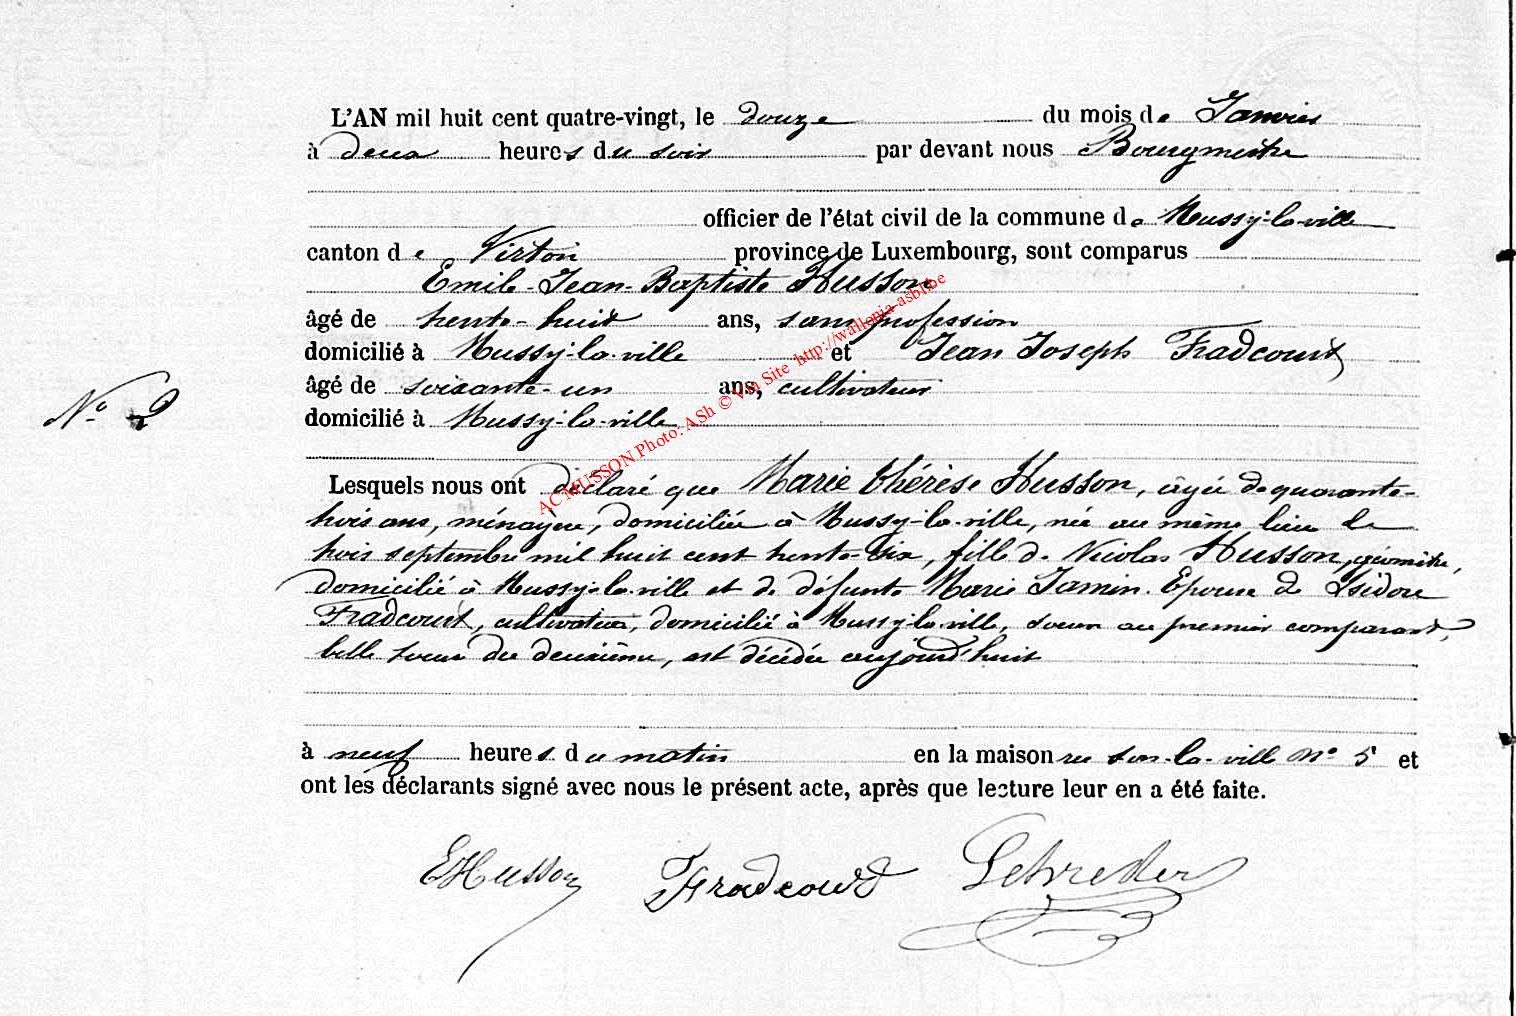 L'AN mil huit cent quatre-vingt, le douze du mois de Janvier
à deux heures du soir par devant nous Bourgmestre
officier de l'état civil de la commune de Mussy-la-ville
canton de Virton province de Luxembourg, sont comparus
Emile-Jean-Baptiste Husson
âgé de trente-huit ans, sans profession
domicilié à Mussy-la-ville et Jean Joseph Fradcourt
âgé de soixante-un ans, cultivateur
N° 2
domicilié à Mussy-la-ville
Lesquels nous ont déclaré que Marie thérèse Husson, âgée de quarante-
trois ans, ménagère, domiciliée à Mussy-la-ville, née au même lieu le
trois septembre mil huit cent trente-six, fille de Nicolas Husson, géomètre,
domicilié à Mussy-la-ville et de défunte Marie Jamin. Epouse de Isidore
Fradcourt, cultivateur, domicilié à Mussy-la-ville, soeur au premier comparant,
belle soeur du deuxième, est décédée aujourd'huit
à neuf heures du matin en la maison rue sur-la-ville N° 5 et
ont les déclarants signé avec nous le présent acte, après que lecture leur en a été faite.
EHusson Fradcourt
ACMUSSON Photo: ASh © Via Site http://wallonia-asbl.be